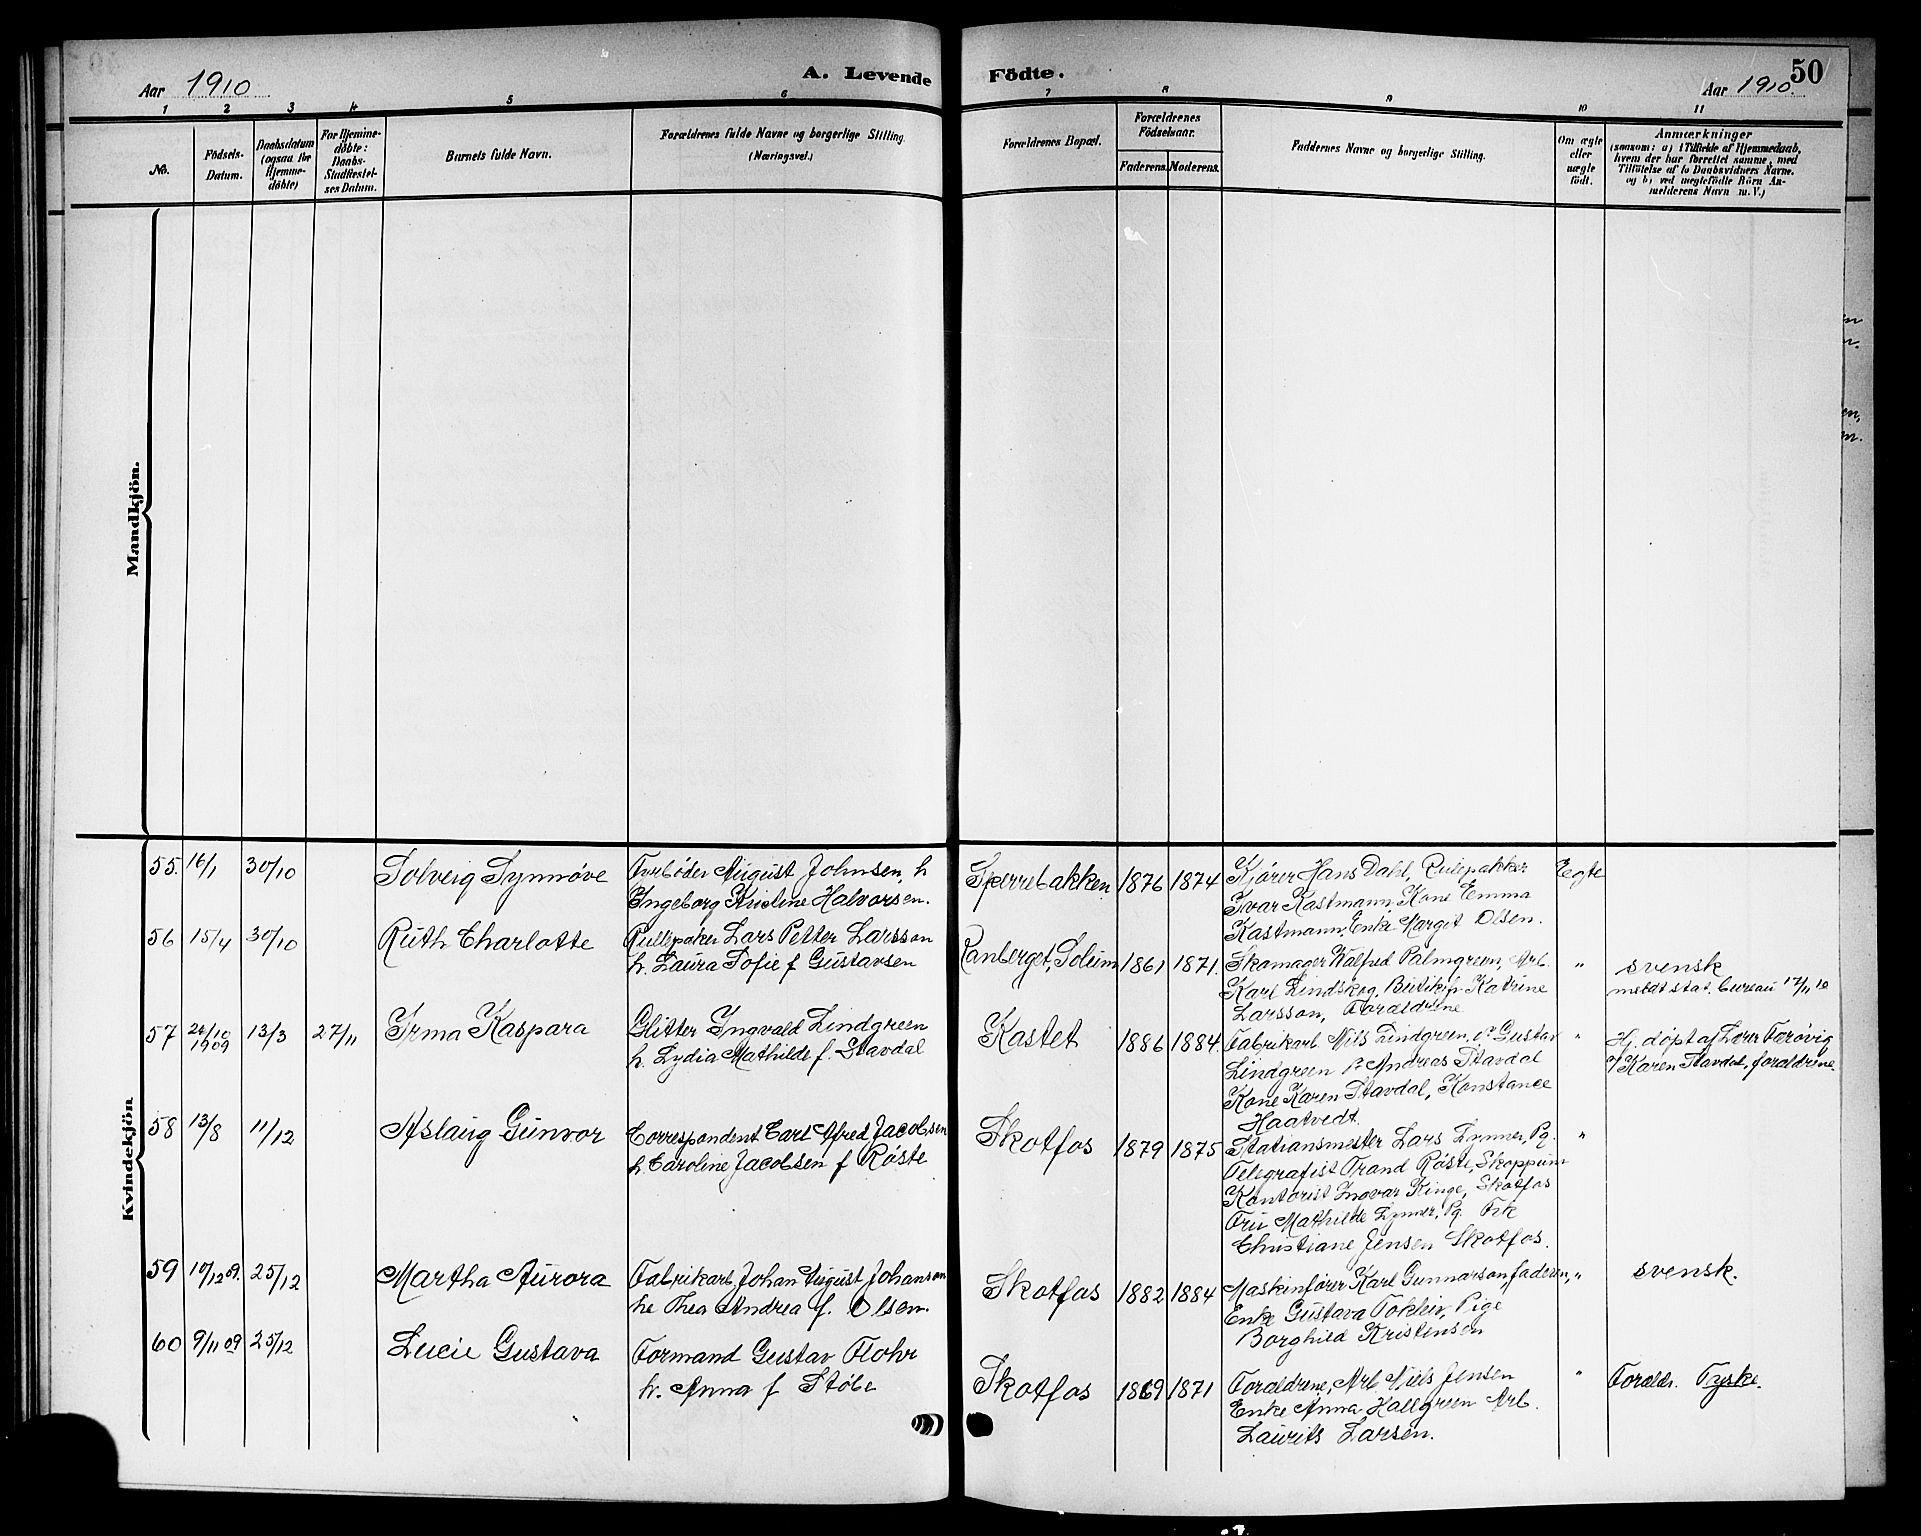 Aar 1910
A. Levende
Födte.
50
Aar 1910.
1 2 3 4 5 6 7 8 9 10 11
No.
Födsels-
Datum.
Daabsdatum
(ogsaa for
Hjemme-
döbte)
For Hjemme-
döbte:
Daabs-
Stadfæstel-
ses Datum.
Barnets fulde Navn.
Forældrenes fulde Navne og borgerlige Stilling.
(Næringsvei.)
Forældrenes Bopæl.
Forældrenes
Födselsaar.
Faderens. Moderens.
Faddernes Navne og borgerlige Stilling.
Om ægte
eller
uægte
født.
Anmærkninger
(saasom: a) i Tilfælde af Hjemmedaab,
hvem der har forrettet samme, med
Tilföielse af to Daabsvidners Navne.
og b) ved uægtefödte Börn An-
melderens Navn m. V.)
Mandkjön.
Kvindekjön
55. 16/1 30/10 Solveig Synnøve
August Johnsen, h
Ingeborg Kristine Halvorsen.
Sperrebakken 1876 1874
Kjører Hans Dahl, Rulepakker
Ivar Kastmann Kone Emma
Kastmann, Enke Margit Olsen.
Egte
56 15/4 30/10 Ruth Charlotte
Rullepaker Lars Petter Larsson
h. Laura Sofie f Gustavsen
Ranberget, Solum 1861 1871.
Skomager Walfred Palmgreen, Arb.
Karl Lindskog. Katrine
Larsson, Foraldrene
" svensk
meldt stat. bureau 17/11 10
57 24/10 1909 13/3 27/11 Irma Kaspara
Glitter Ingvald Lindgreen
h. Lydia Mathilde f. Stavdal
Kastet 1886 1884.
Fabrikarb. Nils Lindgreen, Gustav
Lindgreen Andreas Stavdal
Kone Karen Stavdal, Konstance
Haatvedt.
" Hj. døpt af Lærer Færøvig
Karen Stavdal, foraldrene.
58 13/8 11/12 Aslaug Gunvor
Correspondent Carl Alfred Jacobsen
h Caroline Jacobsen f Røste
Skotfos 1879 1875
Stationsmester Lars Lynner, Pg.
Telegrafist Trand Røste, Skoppum
Kontorist Ingvar Kinge, Skotfos
Fru Mathilde Lynner, Pg. Frk
Christiane Jensen Skotfos.
"
59 10/12 09. 25/12 Martha Aurora
Fabrikarb. Johan August Johanson
he Thea Andrea f. Olsen.
Skotfos 1882 1884
Maskinfører Karl Gunnarson, faderen,
Enke Gustava Pige
Borghild Kristenson
" svensk.
60 9/11 09 25/12 Lucie Gustava
Formand Gustav Flohr
h. Anna f Støbe
Skotfos 1869 1871
Foraldrene, Arb. Niels Jensen
Enke Anna Hallgreen Arb.
Laurits Larsen.
" Foraldr. Tyske.